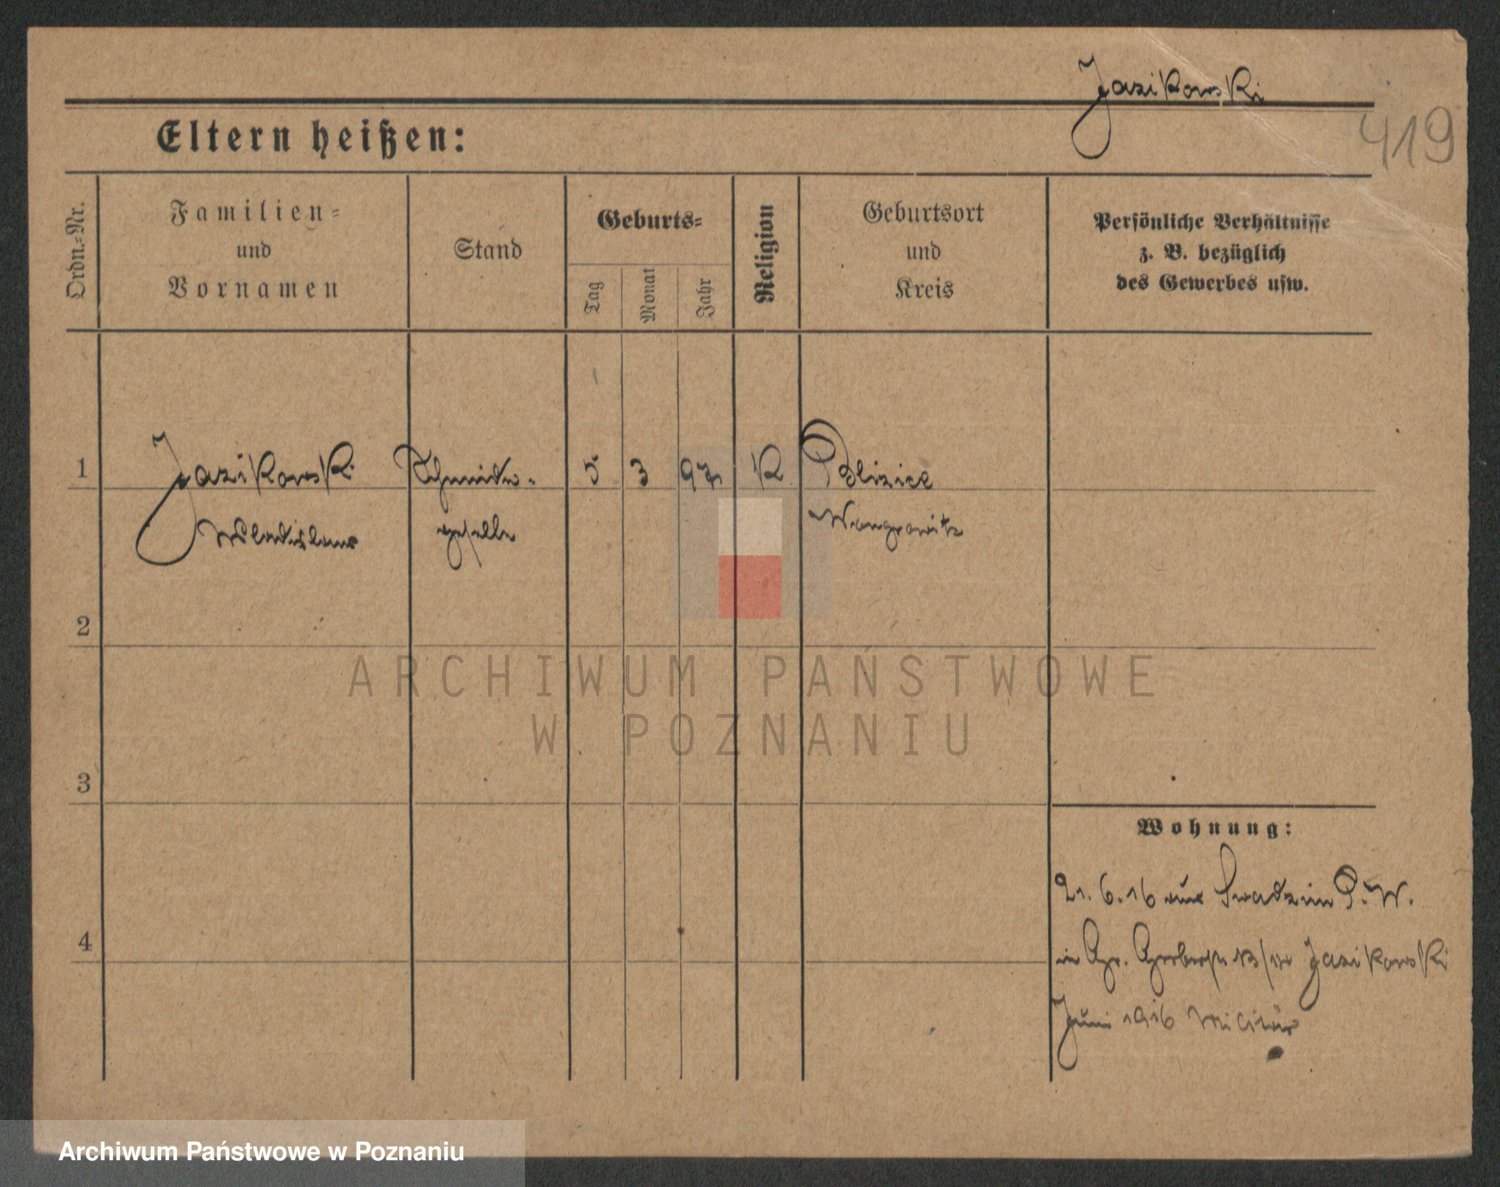 Jazikowski
419
Eltern heißen:
Ordn.-Nr.
Familien-
und
Vornamen
Stand
Geburts-
Tag
Monat
Jahr
Religion
Geburtsort
und
Kreis
Persönliche Verhältnisse
z. B. bezüglich
des Gewerbes usw.
1 Jazikowski Schmiede- 5 3 97 K
Wladislaus geselle Wongrowitz
2
3
4
ARCHIWUM PAŃSTWOWE
W POZNANIU
Wohnung:
21.6.16 aus Swadzim P.W.
in Gr. 13/ Jazikowski
Juni 1916 Militär
Archiwum Państwowe w Poznaniu